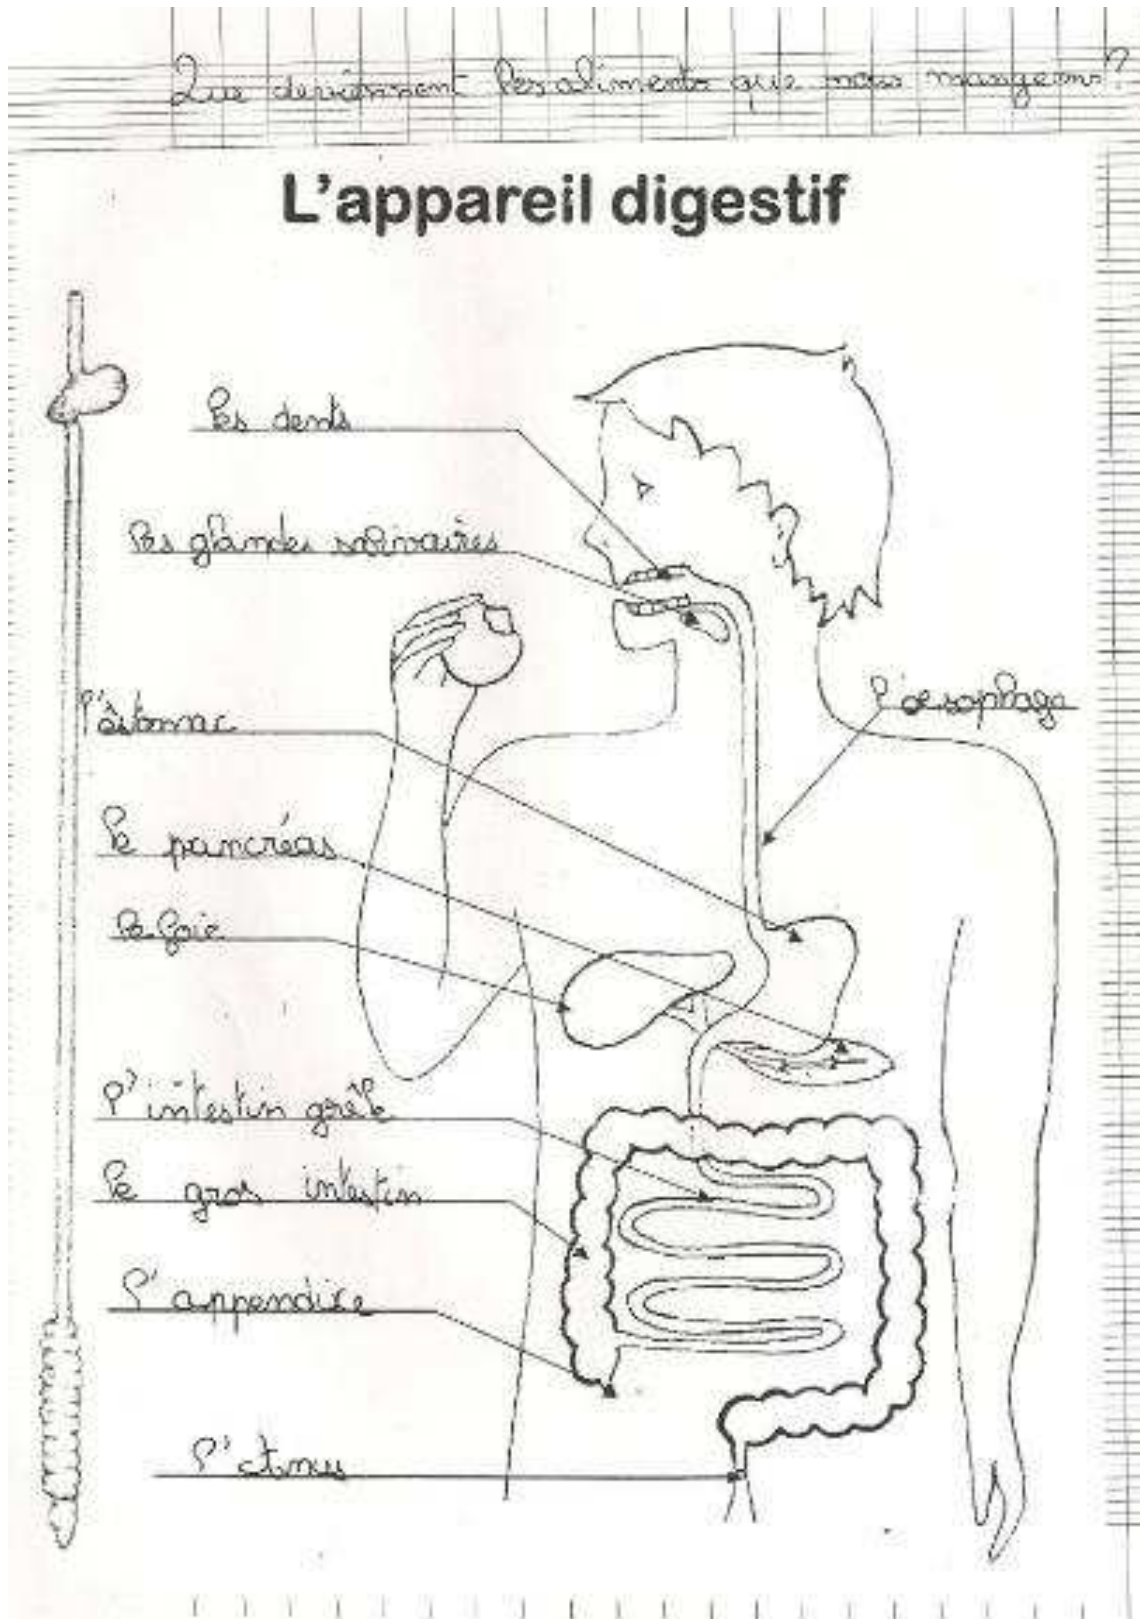 Que deviennent les aliments que nous mangeons?
L'appareil digestif
les dents
les glandes salivaires
l'oesophage
l'éstomac
le pancréas
le foie
l'intestin grêle
le gros intestin
l'appendice